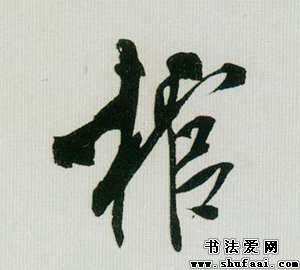 棺
书法爱网
www.shufaai.com